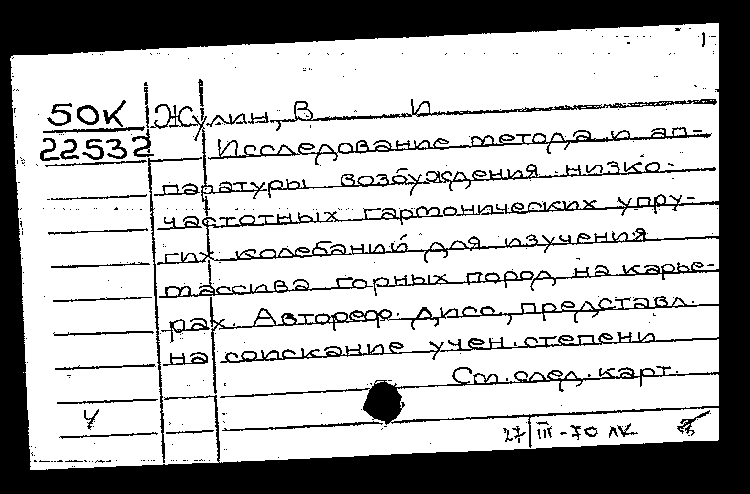 50К Жулин, В И
22532 Исследование метода и ап-
паратуры возбуждения низко-
частотных гармонических упру-
гих колебаний для изучения
массива горных пород на карье-
рах. Автореф. дисс., представл.
на соискание учен. степени
См. след. карт.
27/III-70